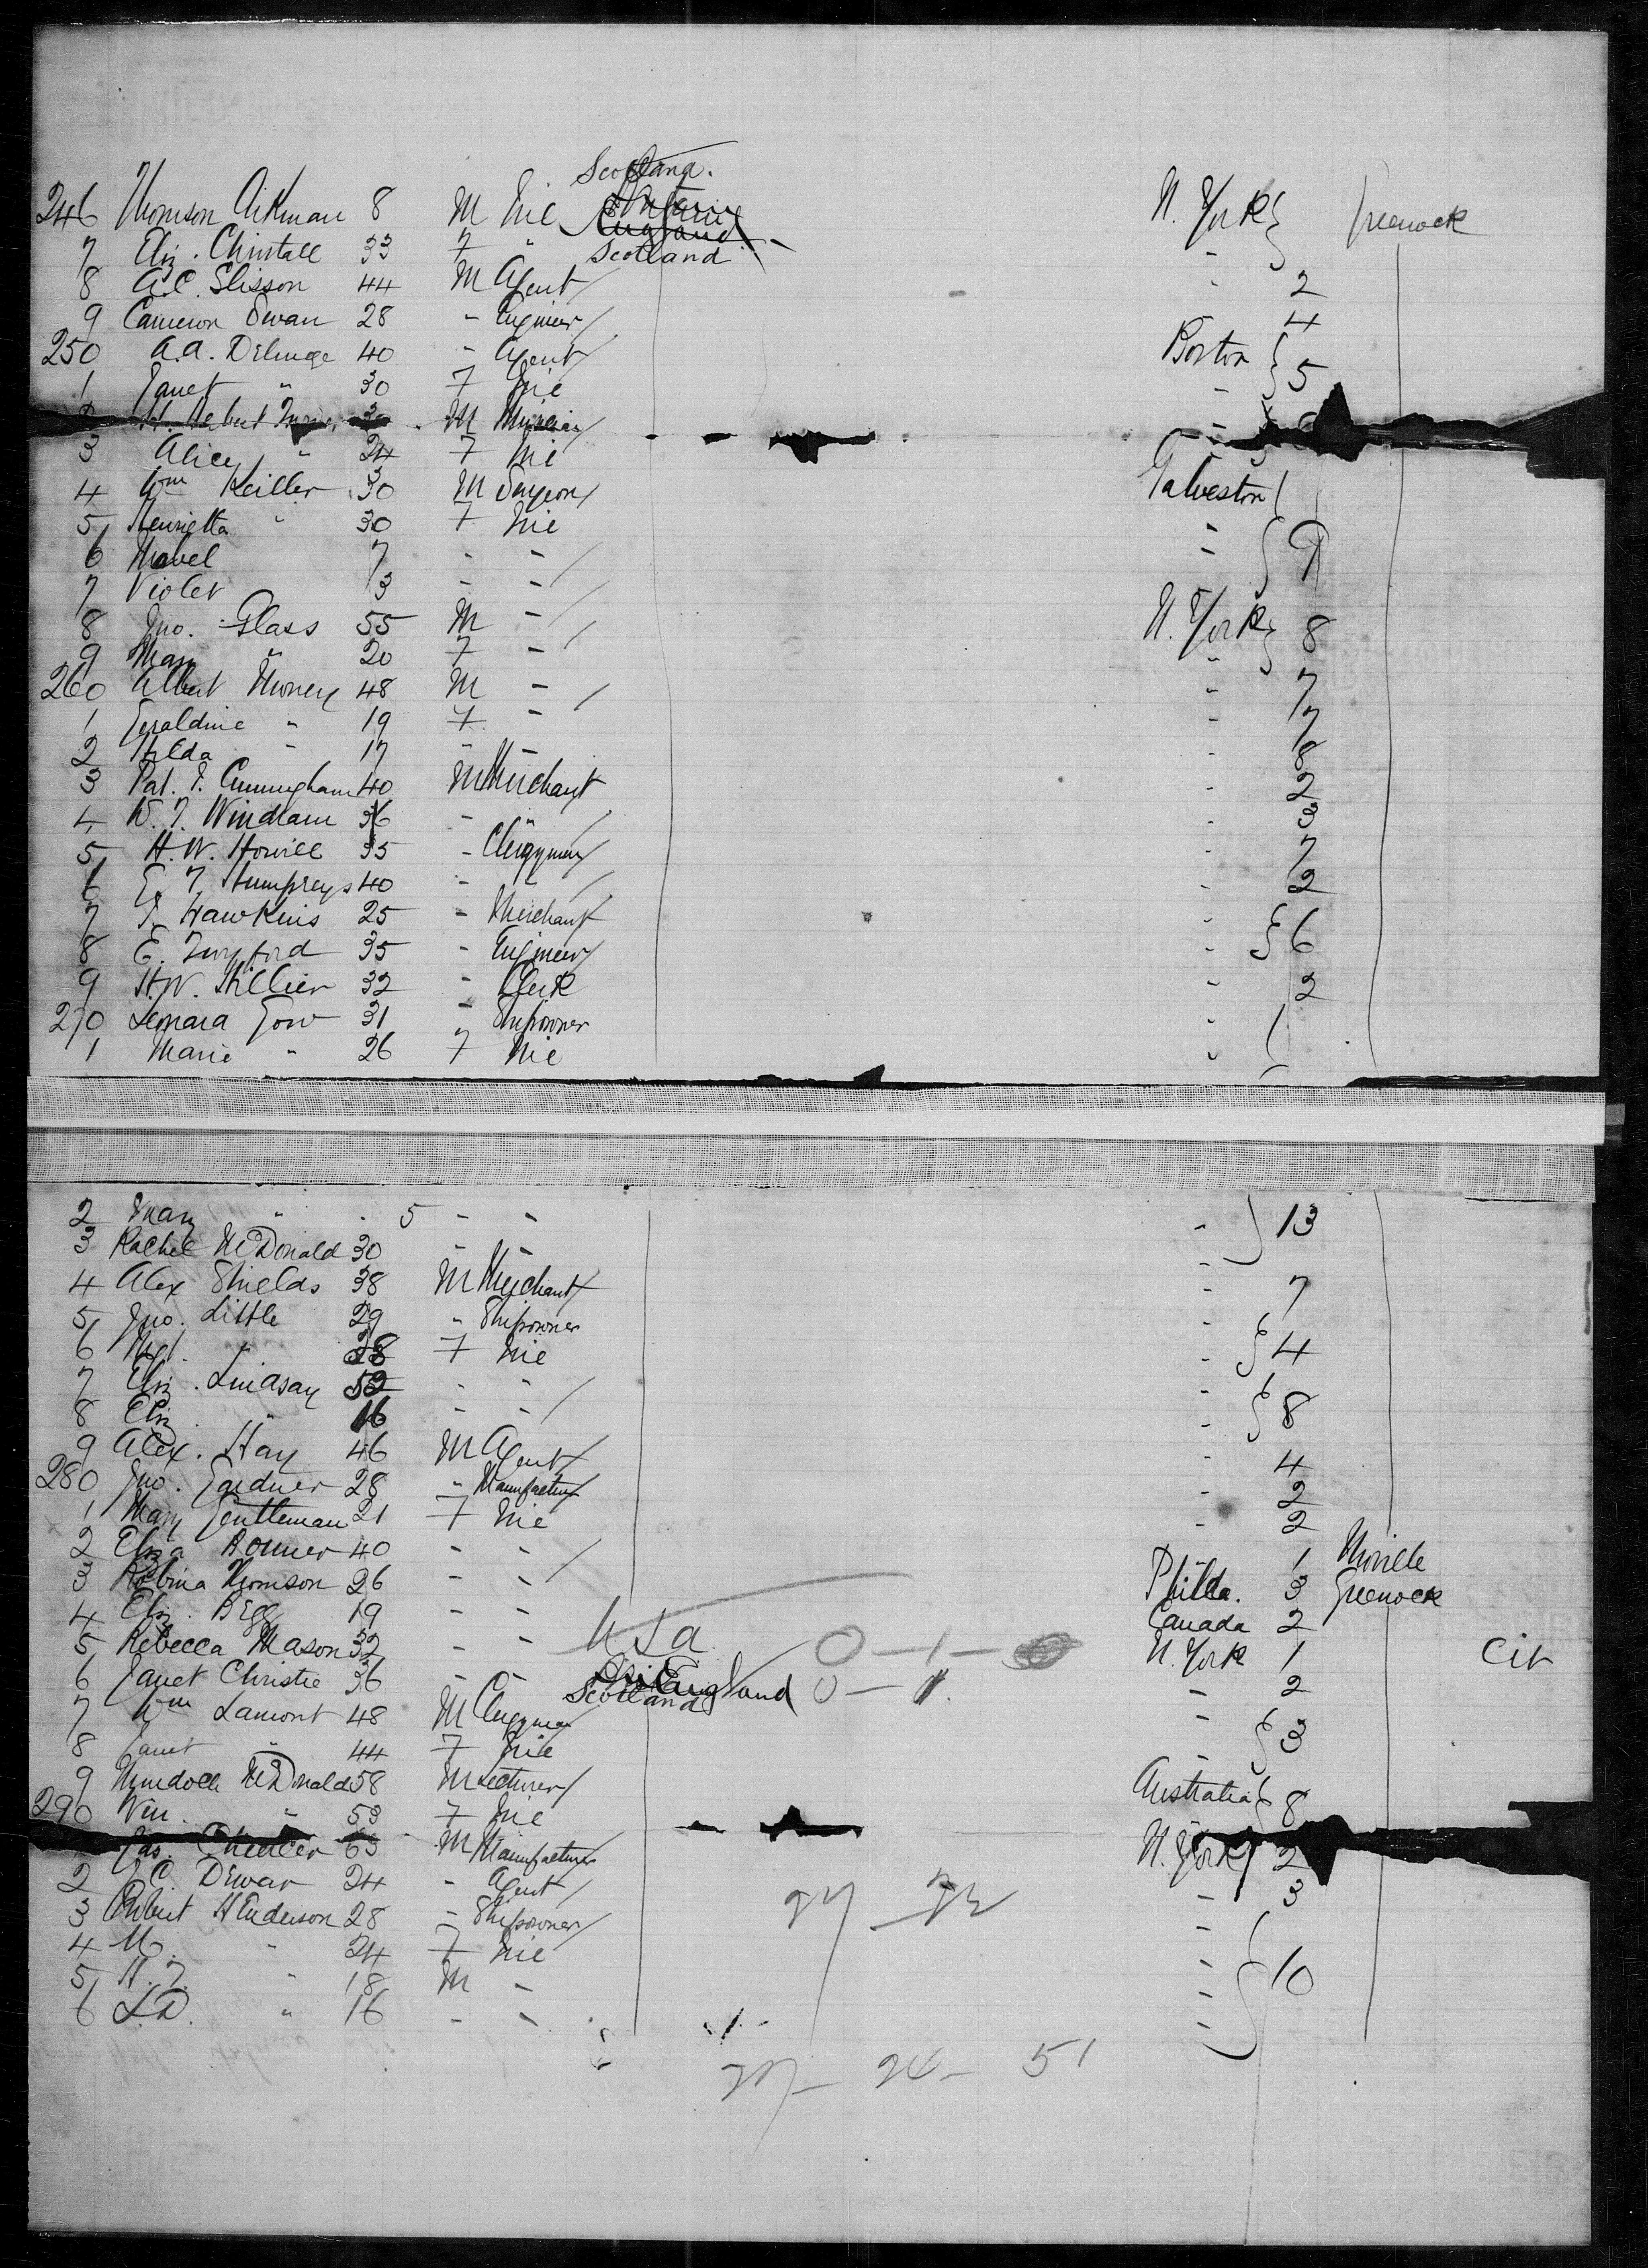 Scotland.
246 Thomson Aikman 8 M Nil England N. York Greenock
7 Eliz. Christall 33 F " Scotland "
8 A.C. Slisson 44 M Agent " 2
9 Cameron Swan 28 " Engineer 4
250 A.A. 40 " Agent Boston 5
1 Janet " 30 F Nil "
M Musician "
3 Alice " 24 F Nil
4 Wm Keiller 30 M Surgeon Galveston
5 Henrietta " 30 F Nil "
6 Mabel 7 " " 9
7 Violet 3 " "
8 Jno. Glass 55 M " N. York 8
9 Mary " 20 F " "
260 Albert 48 M " " 7
1 Geraldine " 19 F " " 7
2 Hilda " 17 " " " 8
3 Pat. J. Cunningham 40 M Merchant " 2
4 W. J. Windram 36 " " " 3
5 H. W. Howill 35 " Clergyman " 7
6 E. J. Humphreys 40 " " " 2
7 J. Hawkins 25 " Merchant " 6
8 E. Twyford 35 " Engineer "
9 H.W. Hillier 32 " Clerk " 2
270 Leonard Gow 31 " Shipowner "
1 Marie " 26 F Nil "
2 Mary " 5 " " " 13
3 Rachel McDonald 30 " " "
4 Alex Shields 38 M Merchant " 7
5 Jno. Little 29 " Shipowner " 4
6 Mgt. " 28 F Nil "
7 Eliz. Lindsay 52 " " " 8
8 Eliz " 16 " " "
9 Alex. Hay 46 M Agent 4
280 Jno. Gardner 28 " Manufacturer " 2
1 Mary Gentleman 21 F Nil " 2
2 Eliza Bonner 40 " " 1 Moville
3 Robina Thomson 26 " " Philda. 3 Greenock
4 Eliz. Begg 19 " " Canada 2
5 Rebecca Mason 32 " " U S a 0 - 1 - N. York 1 Cit
6 Janet Christie 36 " " England 0 - 1 " 2
7 Wm Lamont 48 M Clergyman Scotland " 3
8 Janet " 44 F Nil "
9 Murdoch McDonald 58 M Lecturer Australia 8
290 Win. " 53 F Nil
Jas. 63 M Manufacturer N. York 2
2 J C. Dewar 24 " Agent " 3
3 Robert Henderson 28 " Shipowner "
4 M. " 24 F Nil " 10
5 H. J. " 18 M " "
6 L.D. " 16 " " "
51